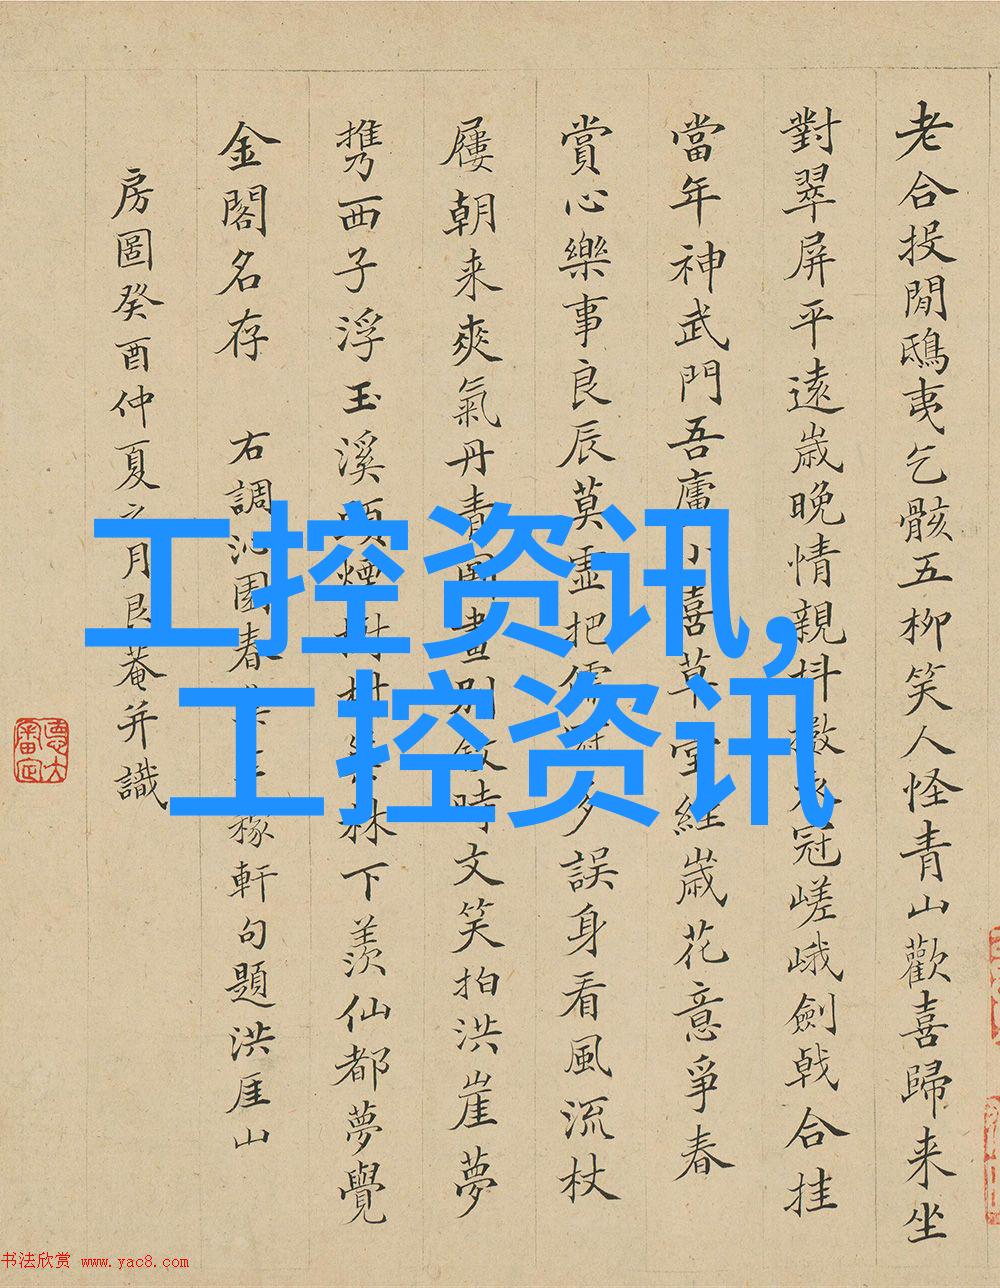 老合投閒鴟夷乞骸五柳笑人怪青山歡喜歸来坐
對翠屏平遠歳晚情親抖擻衣冠嵯峨劍戟合挂
當年神武門吾廬小喜草堂經歳花意爭春
賞心樂事良辰莫虚把儒冠多誤身看風流杖
屨朝来爽氣丹青圖畫別敘時文笑拍洪崖夢
携西子浮玉溪頭煙樹村林下羨仙都夢覺
金閣名存 右調沁園春 稼軒句題洪厓山
房圖癸酉仲夏之月良菴并識
工控资讯,
工控资讯
書法欣赏 www.yac8.com